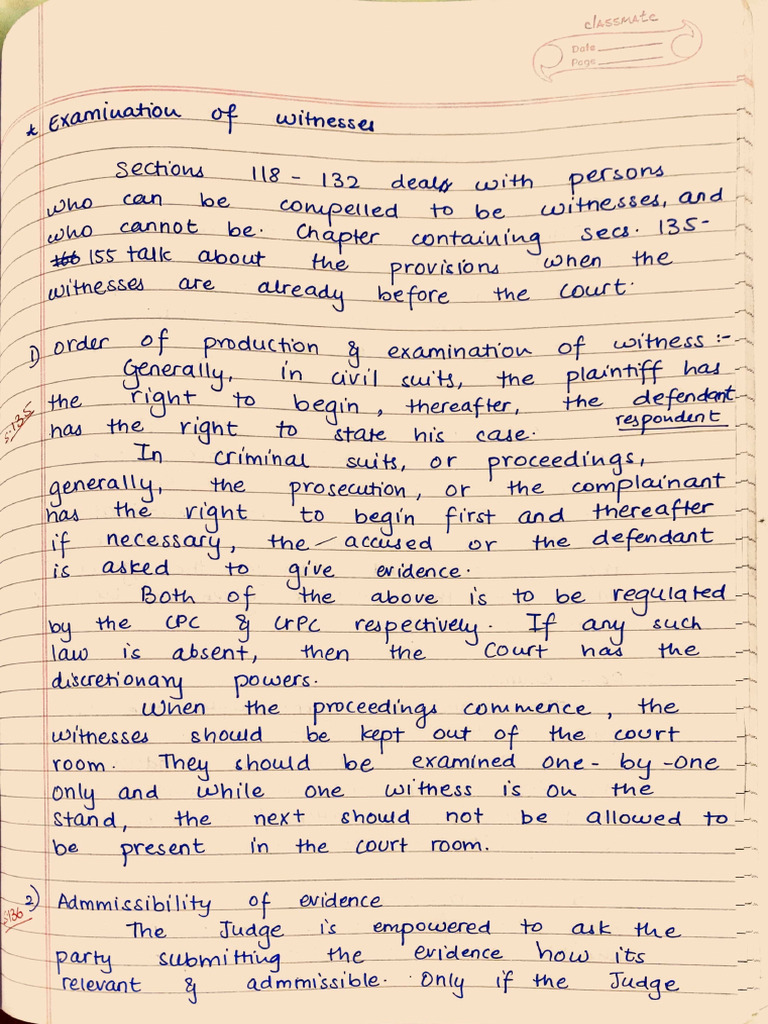 classmate
Date
Page
* Examination of witnesses
Sections 118 - 132 deals with persons
who can be compelled to be witnesses, and
who cannot be. Chapter containing secs. 135-
166 155 talk about the provisions when the
witnesses are already before the court.
1) Order of production & examination of witness :-
Generally, in civil suits, the plaintiff has
the right to begin, thereafter, the defendant
S.135
respondent
has the right to state his case.
In criminal suits, or proceedings,
generally, the prosecution, or the complainant
has the right to begin first and thereafter
if necessary, the accused or the defendant
is asked to give evidence.
Both of the above is to be regulated
by the CPC & CrPC respectively. If any such
law is absent, then the Court has the
discretionary powers.
When the proceedings commence, the
witnesses should be kept out of the court
room. They should be examined one-by-one
only and while one witness is on the
stand, the next should not be allowed to
be present in the court room.
2) Admmissibility of evidence
S136
The Judge is empowered to ask the
party submitting the evidence how its
relevant & admmissible. Only if the Judge